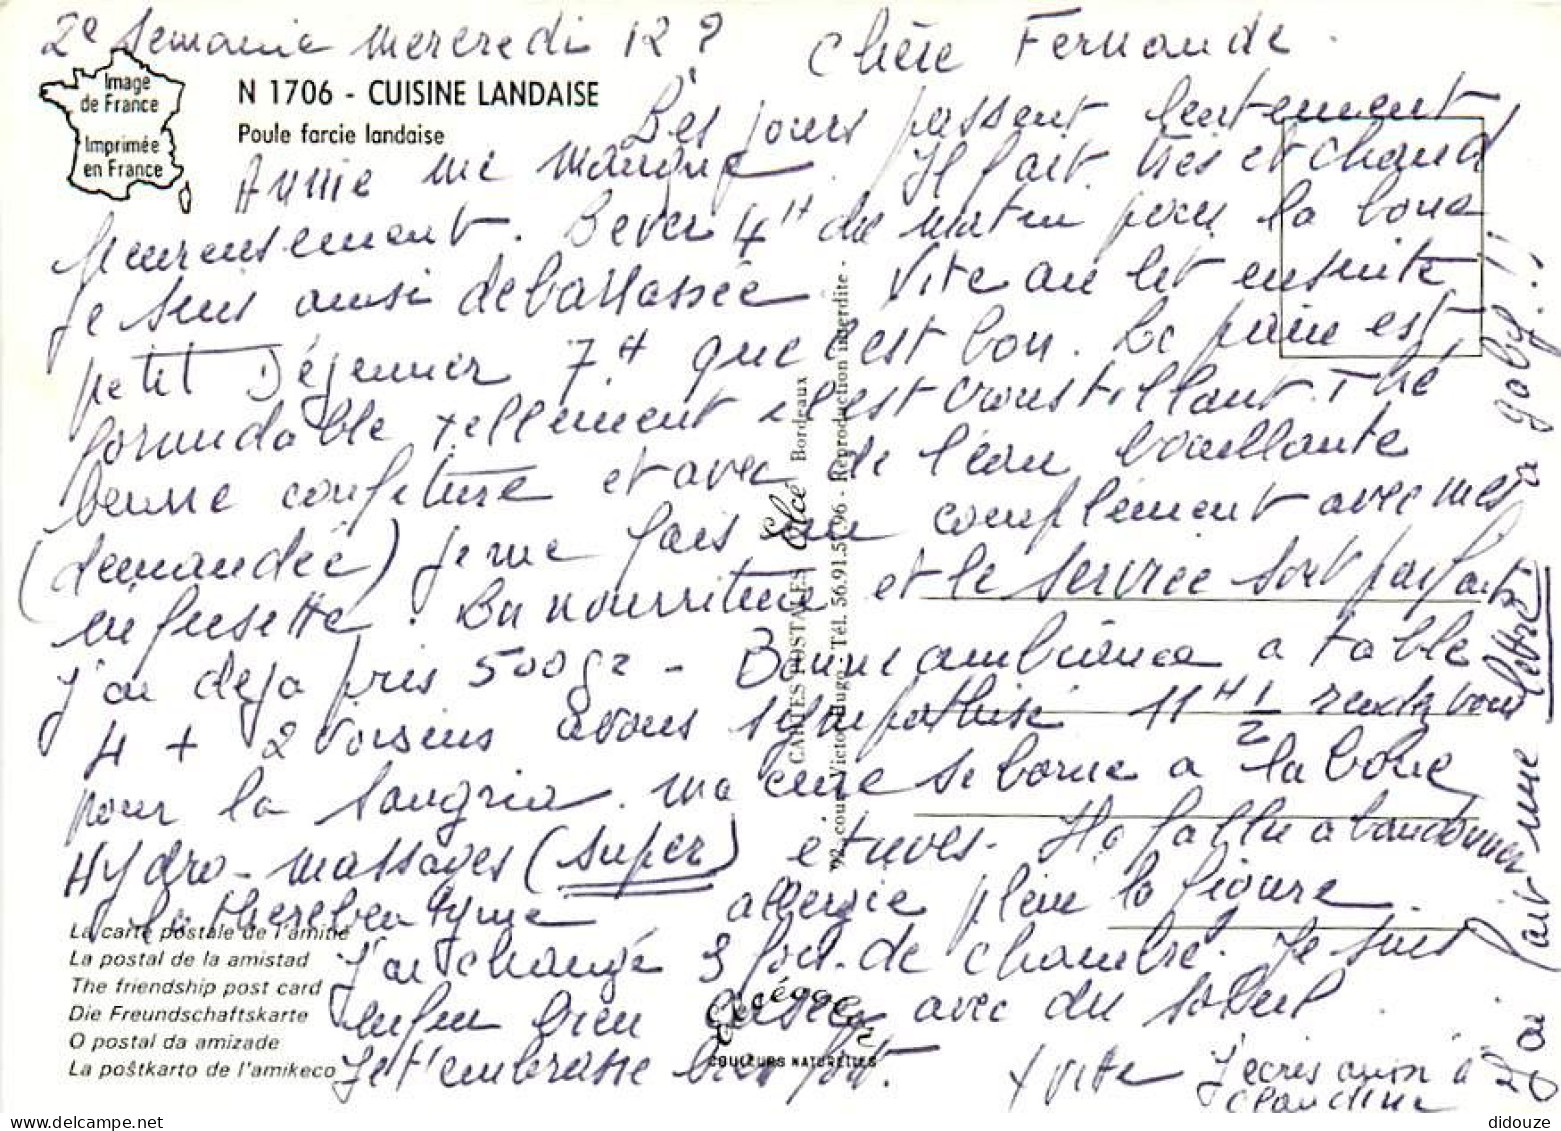 2e Semaine Mercredi 12 ? Chère Fernande.
Image
de France
Imprimée
en France
N 1706 - CUISINE LANDAISE
Poule farcie landaise
Les jours passent lentement
Annie me manque. Il fait très et chaud
heureusement. Lever 4H du matin pour la boue
Je suis ainsi débarrassée Vite au lit ensuite
petit Déjeuner 7H que c'est bon. Le pain est
formidable tellement il est croustillant. Thé
beurre confiture et avec de l'eau bouillante
(demandée) je me fais un complément avec mes
infusette. La nourriture et le service sont parfaits
j'ai déja pris 500gr - Bonne ambiance a table
4 + 2 voisins avons sympathisé 11H 1/2 rendez vous
pour la Sangria. ma cure se borne a la boue
Hydro-massages (super) étuves. Il a fallu abandonner
la allergie plein la figure.
J'ai changé 3 fois de chambre. Je suis
enfin bien avec du soleil.
Je t'embrasse bien fort.
+ vite J'écris aussi à
Claudine
J'ai fait une lettre a Gaby !!!
CARTES POSTALES Elcé Bordeaux
92, cours Victor Hugo - Tél. 56.91.51.96 - Reproduction interdite -
La carte postale de l'amitié
La postal de la amistad
The friendship post card
Die Freundschaftskarte
O postal da amizade
La poŝtkarto de l'amikeco
COULEURS NATURELLES
didouze